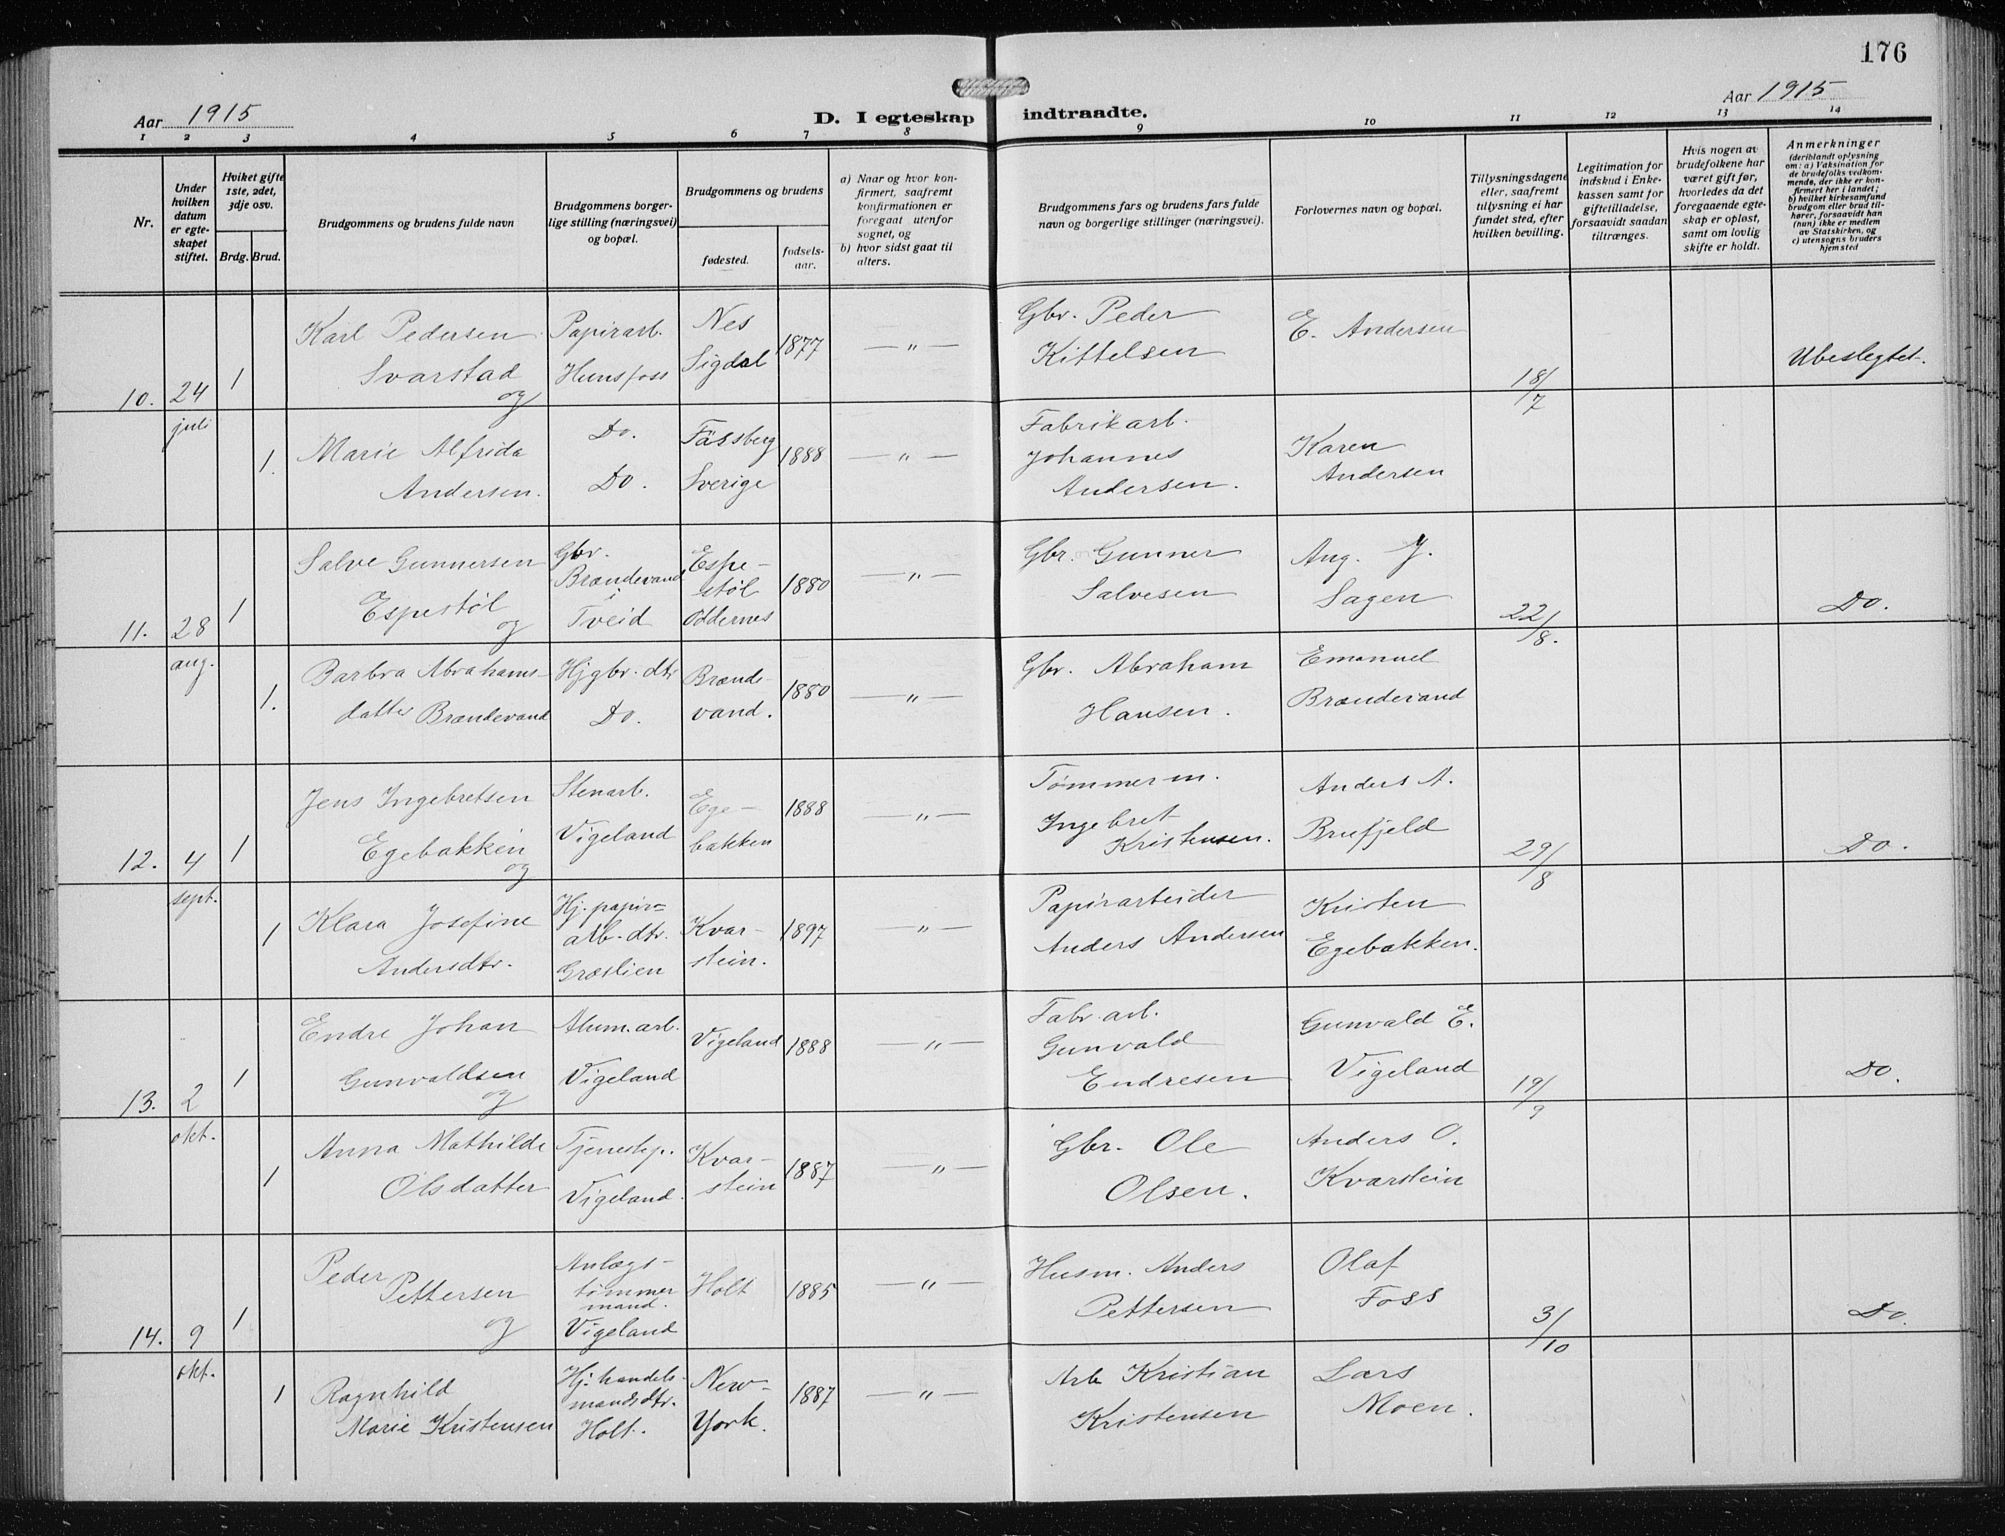 176
Aar 1915
D. I egteskap indtraadte.
Aar 1915
1 2 3 4 5 6 7 8 9 10 11 12 13 14
Nr.
Under hvilken datum er egte-skapet stiftet.
Hviket gifte 1ste, 2det, 3dje osv.
Brdg. Brud.
Brudgommens og brudens fulde navn
Brudgommens borger-lige stilling (næringsvei) og bopæl.
Brudgommens og brudens
fødested.
fødsels-aar.
a) Naar og hvor kon-firmert, saafremt konfirmationen er foregaat utenfor sognet, og
b) hvor sidst gaat til alters.
Brudgommens fars og brudens fars fulde navn og borgerlige stillinger (næringsvei).
Forlovernes navn og bopæl.
Tillysningsdagene eller, saafremt tillysning ei har fundet sted, efter hvilken bevilling.
Legitimation for indskud i Enke-kassen samt for giftetilladelse, forsaavidt saadan tiltrænges.
Hvis nogen av brudefolkene har været gift før, hvorledes da det foregaaende egte-skap er opløst, samt om lovlig skifte er holdt.
Anmerkninger
(deriblandt oplysning om: a) Vaksination for de brudefolks vedkom-mende, der ikke er kon-firmert her i landet; b) hvilket kirkesamfund brudgom eller brud til-hører, forsaavidt han (hun) ikke er medlem av Statskirken, og c) utensogns bruders hjemsted
10. 24 juli 1
Karl Pedersen
Svarstad
og
Papirarb.
Hunsfoss
Nes
Sigdal
1877
— " —
Gbr. Peder
Kittelsen
E. Andersen
18/7
Ubeslegtet.
1.
Marie Alfrida
Andersen.
Do.
Do.
Fässberg
Sverige
1888
— " —
Fabrikarb.
Johannes
Andersen.
Karen
Andersen
11. 28 aug. 1
Salve Gunnersen
Espestøl
og
Gbr.
Brændevand
Tveid
Espe-
støl
Oddernes
1880
— " —
Gbr. Gunner
Salvesen
Aug. J.
Sagen
22/8.
Do.
1.
Barbra Abrahams-
datter Brændevand
Hj gbr. dtr
Do.
Brænde-
vand.
1880
— " —
Gbr. Abraham
Hansen.
Emanuel
Brændevand
12. 4 sept. 1
Jens Ingebretsen
Egebakken
og
Stenarb.
Vigeland
Ege-
bakken
1888
— " —
Tømmerm.
Ingebret
Kristensen.
Anders A.
Brufjeld
29/8
Do.
1
Klara Josefine
Andersdtr.
Hj. papir=
arb. dtr.
Græslien
Kvar-
stein.
1897
— " —
Papirarbeider
Anders Andersen
Kristen
Egebakken.
13. 2 okt. 1
Endre Johan
Gunvaldsen
og
Alum.arb.
Vigeland
Vigeland
1888
— " —
Fabr.arb.
Gunvald
Endresen
Gunvald E.
Vigeland
19/9
Do.
1
Anna Mathilde
Olsdatter
Tjenestep.
Vigeland.
Kvar-
stein
1887
— " —
Gbr. Ole
Olsen.
Anders O.
Kvarstein
14. 9 okt. 1
Peder
Pettersen
og
Anlægs-
tømmer
mand.
Vigeland
Holt
1885
— " —
Husm. Anders
Pettersen
Olaf
Foss
3/10
Do.
1
Ragnhild
Marie Kristensen
Hj. handels-
mandsdtr.
Holt.
New-
York.
1887
— " —
Arb Kristian
Kristensen
Lars
Moen.